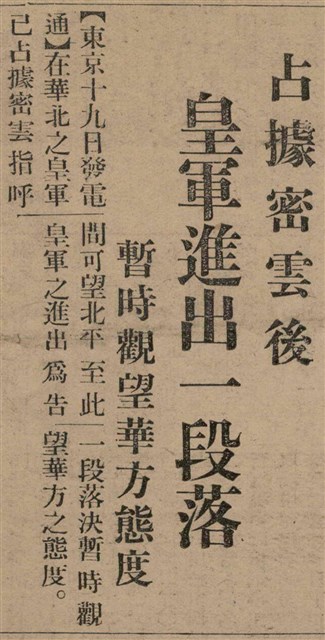 占據密雲後
皇軍進出一段落
暫時觀望華方態度
【東京十九日發電
通】在華北之皇軍
已占據密雲指呼
間可望北平至此
皇軍之進出爲告
一段落決暫時觀
望華方之態度。